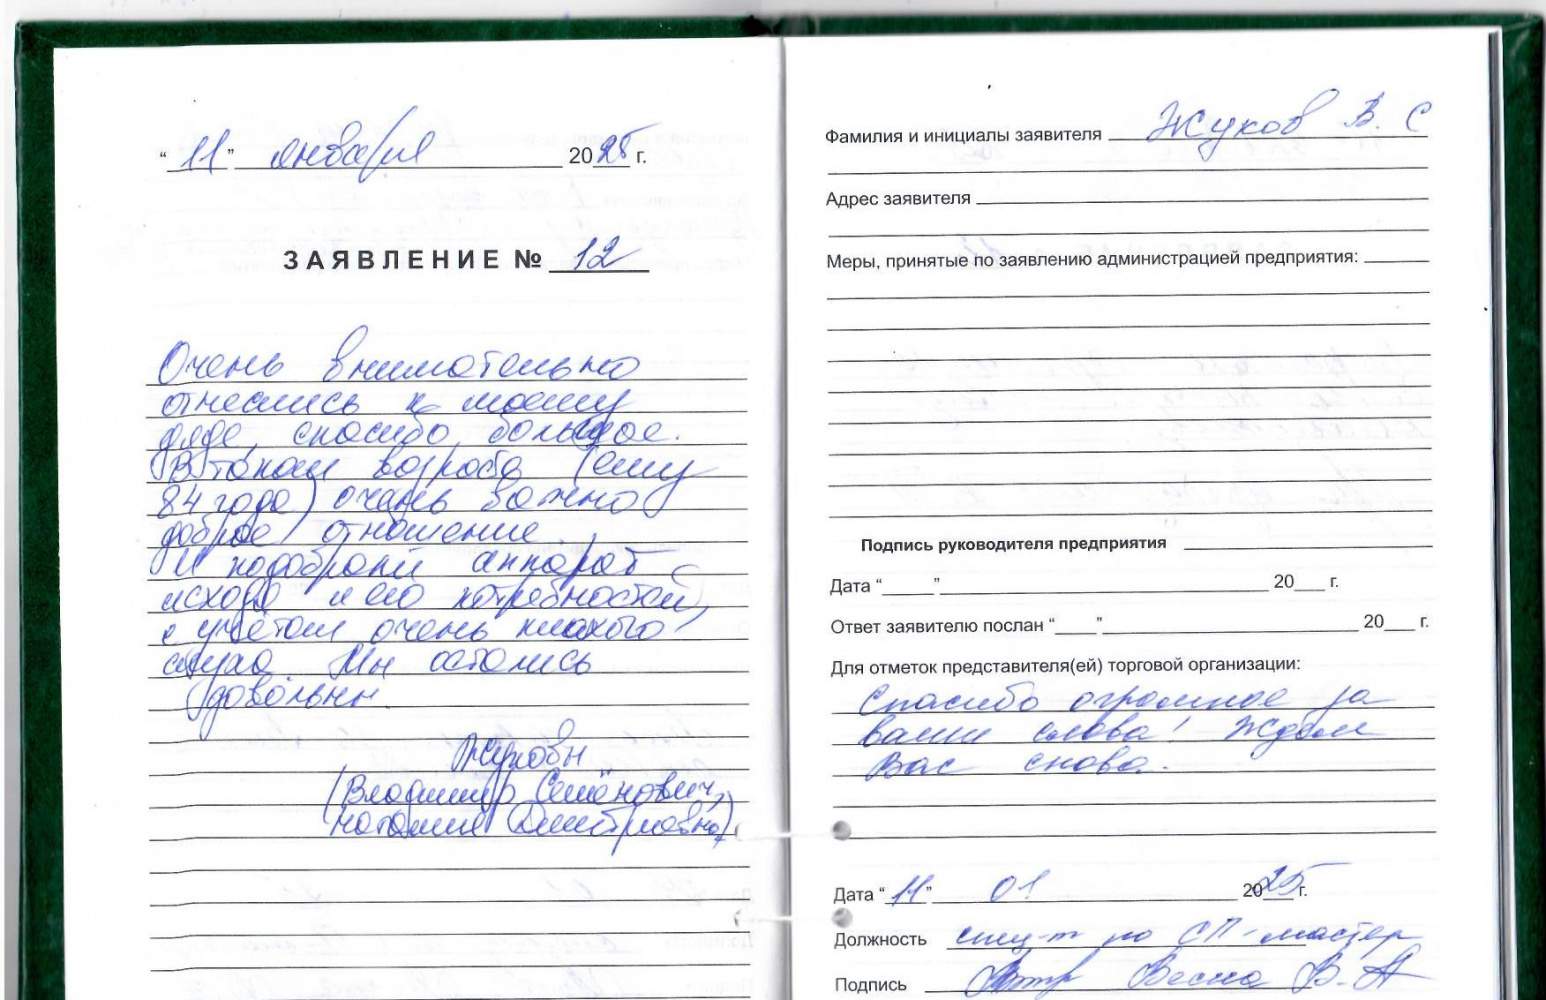 “11” января 2025 г.
ЗАЯВЛЕНИЕ № 12
Очень внимательно
отнеслись к моему
дяде, спасибо большое.
В таком возрасте (ему
84 года) очень важно
доброе отношение.
И подобрали аппарат
исходя и его потребностей,
с учётом очень плохого
слуха. Мы остались
довольны.
Жуковы
(Владимир Семёнович,
Наталия Дмитриевна)
Фамилия и инициалы заявителя Жуков В. С
Адрес заявителя
Меры, принятые по заявлению администрацией предприятия:
Подпись руководителя предприятия
Дата “ ” 20 г.
Ответ заявителю послан “ ” 20 г.
Для отметок представителя(ей) торговой организации:
Спасибо огромное за
ваши слова! Ждём
Вас снова.
Дата “11” 01 2025 г.
Должность спец-т по СП-мастер
Подпись Весна В.А